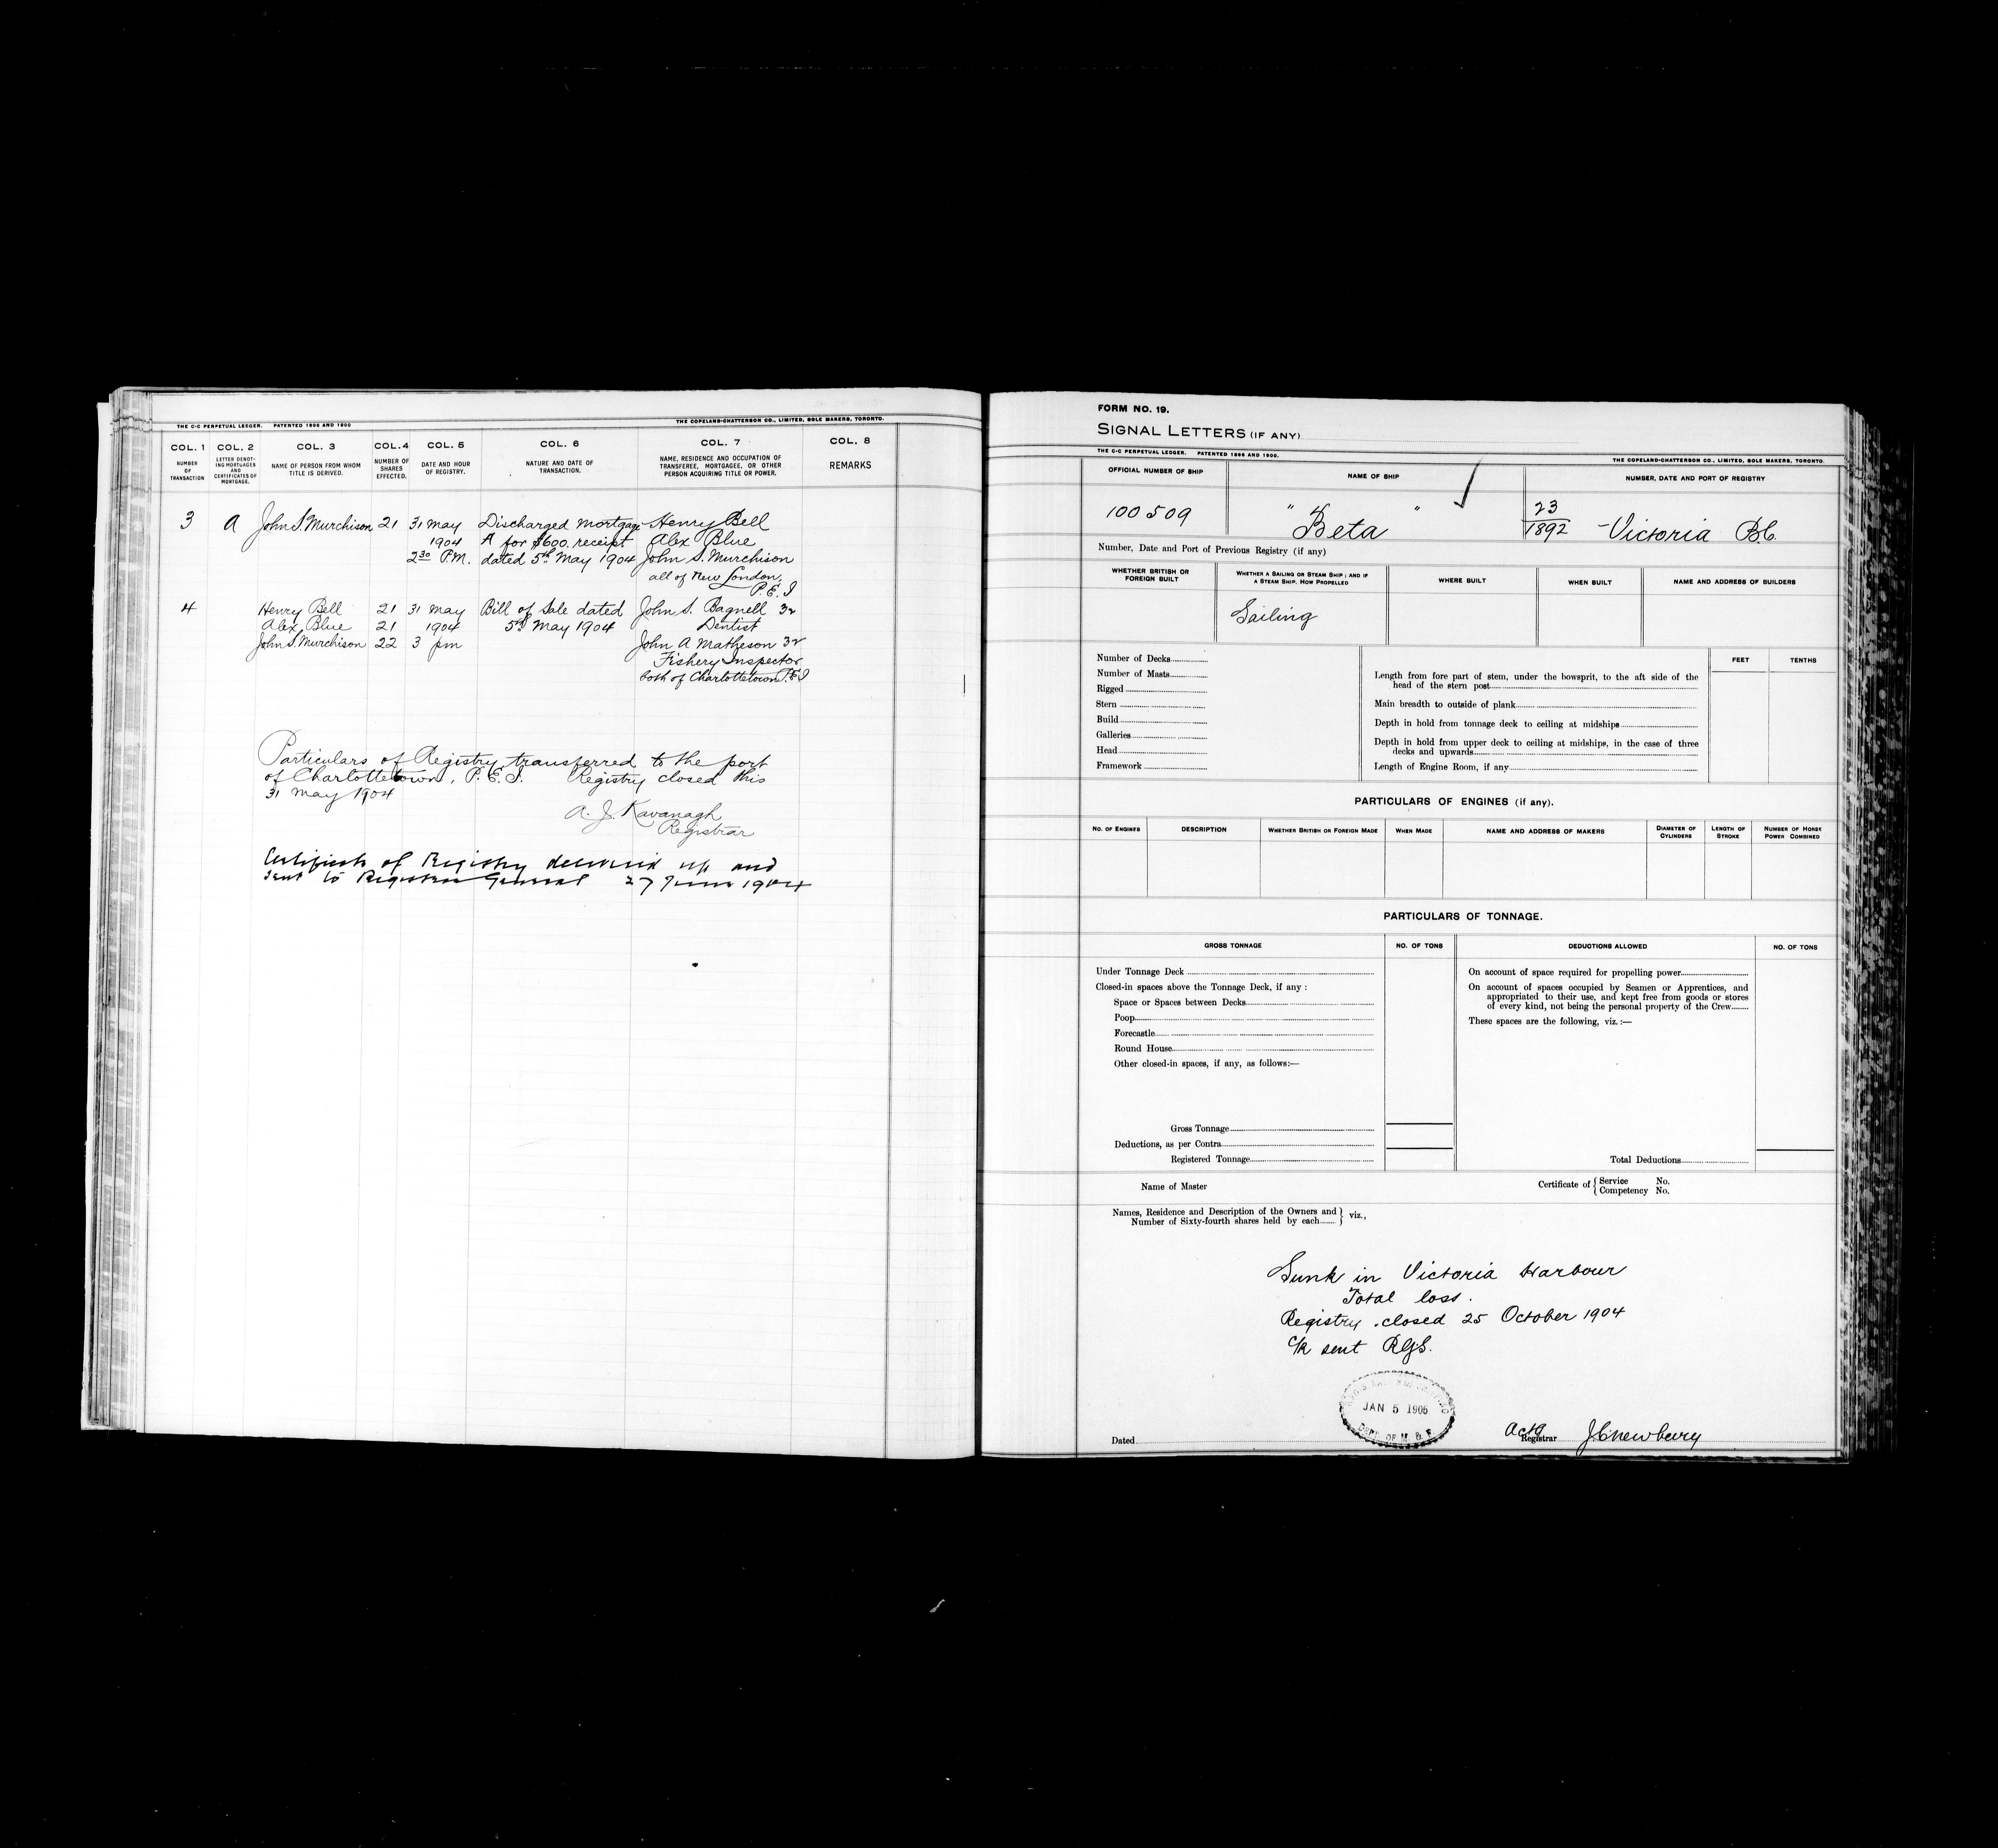 THE C-C PERPETUAL LEDGER. PATENTED 1896 AND 1900 THE COPELAND-CHATTERSON CO., LIMITED, SOLE MAKERS, TORONTO.
COL. 1 COL. 2 COL. 3 COL. 4 COL. 5 COL. 6 COL. 7 COL. 8
NUMBER OF TRANSACTION
LETTER DENOTING MORTGAGES AND CERTIFICATES OF MORTGAGE.
NAME OF PERSON FROM WHOM TITLE IS DERIVED.
NUMBER OF SHARES EFFECTED.
DATE AND HOUR OF REGISTRY.
NATURE AND DATE OF TRANSACTION.
NAME, RESIDENCE AND OCCUPATION OF TRANSFEREE, MORTGAGEE, OR OTHER PERSON ACQUIRING TITLE OR POWER.
REMARKS
3 A John S. Murchison 21 31 May Discharged mortgage Henry Bell
1904 A for $600. receipt Alex Blue
2 30 P.M. dated 5th May 1904 John S. Murchison
all of New London,
P.E.I
4 Henry Bell 21 31 May Bill of Sale dated John S. Bagnell 32
Alex Blue 21 1904 5th May 1904 Dentist
John S. Murchison 22 3 pm John A Matheson 32
Fishery Inspector
both of Charlottetown P.E.I
Particulars of Registry transferred to the port
of Charlottetown, P.E.I. Registry closed this
31 May 1904
A. J. Kavanagh
Registrar
Certificate of Registry delivered up and
sent to Registrar General 27 June 1904
FORM NO. 19.
SIGNAL LETTERS (IF ANY)
THE C-C PERPETUAL LEDGER. PATENTED 1896 AND 1900. THE COPELAND-CHATTERSON CO., LIMITED, SOLE MAKERS, TORONTO.
OFFICIAL NUMBER OF SHIP NAME OF SHIP NUMBER, DATE AND PORT OF REGISTRY
100509 "Beta" 23/1892 - Victoria B.C.
Number, Date and Port of Previous Registry (if any)
WHETHER BRITISH OR FOREIGN BUILT
WHETHER A SAILING OR STEAM SHIP; AND IF A STEAM SHIP, HOW PROPELLED
WHERE BUILT WHEN BUILT NAME AND ADDRESS OF BUILDERS
Sailing
Number of Decks
Number of Masts
Rigged
Stern
Build
Galleries
Head
Framework
FEET TENTHS
Length from fore part of stem, under the bowsprit, to the aft side of the
head of the stern post
Main breadth to outside of plank
Depth in hold from tonnage deck to ceiling at midships
Depth in hold from upper deck to ceiling at midships, in the case of three
decks and upwards
Length of Engine Room, if any
PARTICULARS OF ENGINES (if any).
NO. OF ENGINES DESCRIPTION WHETHER BRITISH OR FOREIGN MADE WHEN MADE NAME AND ADDRESS OF MAKERS DIAMETER OF CYLINDERS LENGTH OF STROKE NUMBER OF HORSE POWER COMBINED
PARTICULARS OF TONNAGE.
GROSS TONNAGE NO. OF TONS DEDUCTIONS ALLOWED NO. OF TONS
Under Tonnage Deck
Closed-in spaces above the Tonnage Deck, if any :
Space or Spaces between Decks
Poop
Forecastle
Round House
Other closed-in spaces, if any, as follows:—
Gross Tonnage
Deductions, as per Contra
Registered Tonnage
On account of space required for propelling power
On account of spaces occupied by Seamen or Apprentices, and
appropriated to their use, and kept free from goods or stores
of every kind, not being the personal property of the Crew
These spaces are the following, viz.:—
Total Deductions
Name of Master Certificate of { Service No.
Competency No.
Names, Residence and Description of the Owners and
Number of Sixty-fourth shares held by each } viz.,
Sunk in Victoria Harbour
Total loss.
Registry closed 25 October 1904
C/R sent RGS.
JAN 5 1905
DEPT. OF M. & F.
Dated Actg Registrar J.C. Newbury